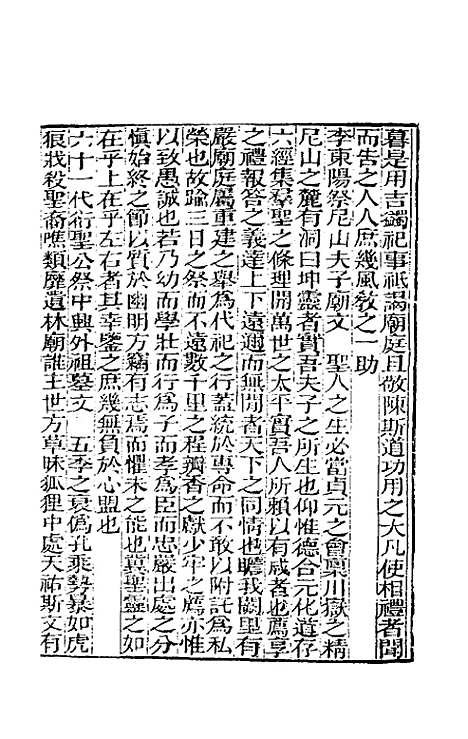 暮是用吉蠲祀事祇謁廟庭且敬陳斯道功用之大凡使相禮者聞
而告之人人庶幾風敎之一助
李東陽祭尼山夫子廟文　聖人之生必當貞元之會稟川嶽之精
尼山之麓有洞曰坤靈者實吾夫子之所生也仰惟德合元化道存
六經集羣聖之條理開萬世之太平實吾人所賴以有成者也薦享
之禮報答之義達上下遠邇而無間者天下之同情也瞻我闕里有
嚴廟庭屬重建之舉爲代祀之行蓋統於專命而不敢以附託爲私
榮也故踰三日之祭而不遠數千里之程瓣香之獻少牢之薦亦惟
以致愚誠也若乃幼而學壯而行爲子而孝爲臣而忠嚴出處之分
愼始終之節以質於幽明方竊有志焉而懼未之能也冀聖靈之如
在乎上在乎左右者其幸鑒之庶幾無負於心盟也
六十一代衍聖公祭中興外祖墓文　五季之衰僞孔乘勢暴如虎
狼戕殺聖裔噍類靡遺林廟誰主世方草昧狐狸中處天祐斯文有